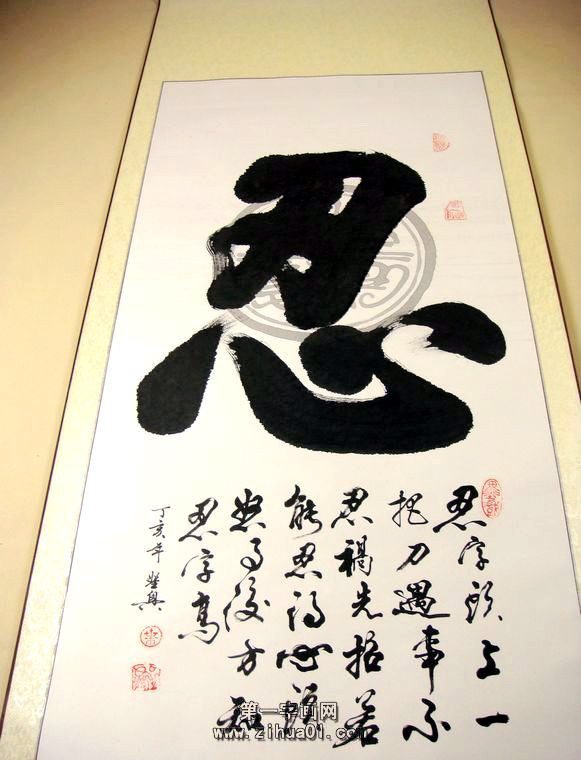 忍
忍字頭上一
把刀遇事不
忍禍先招若
能忍得心頭
怒事後方知
忍字高
丁亥年
第一字画网
www.zihua01.com